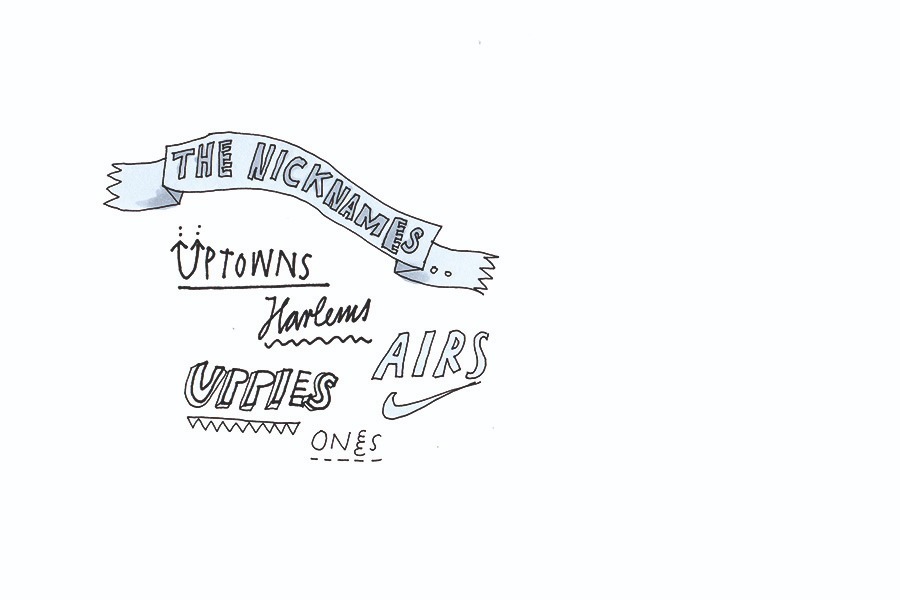 THE NICKNAMES
UPTOWNS
Harlems
AIRS
UPPIES
ONES